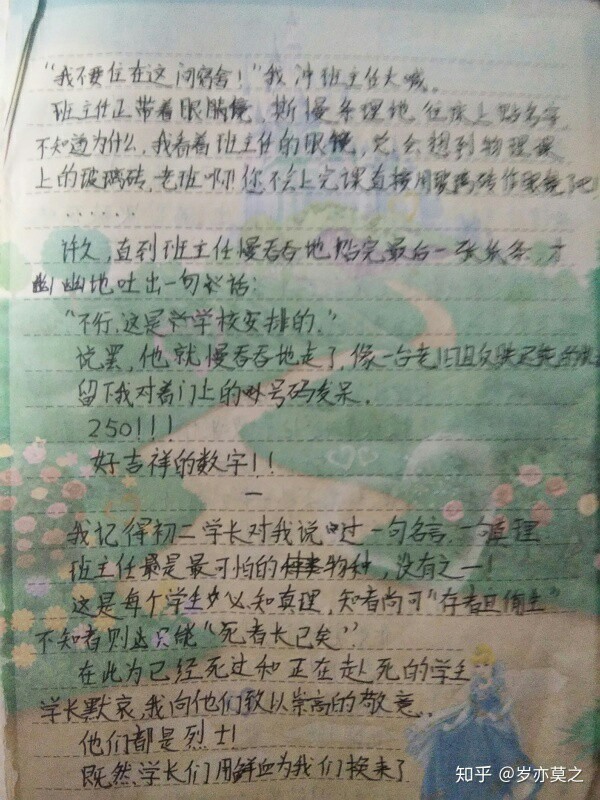 “我不要住在这间宿舍！”我冲班主任大喊。
班主任正带着眼脑镜，斯慢条理地在床上贴名字
不知道为什么，我看着班主任的眼镜，总会想到物理课
上的玻璃砖，老班啊！你不会上完课直接用玻璃砖作眼镜了吧
......
许久，直到班主任慢吞吞地贴完最后一张纸条，才
幽幽地吐出一句话：
“不行，这是学校安排的。”
说罢，他就慢吞吞地走了，像一台老旧且
留下我对着门上的号码发呆。
250！！！
好吉祥的数字！！
一
我记得初二学长对我说过一句名言，一句真理
班主任是最可怕的物种，没有之一！
这是每个学生必知真理，知者尚可“存者且偷生”
不知者则只能“死者长已矣”
在此为已经死过和正在赴死的学生
学长默哀，我向他们致以崇高的敬意。
他们都是烈士！
既然学长们用鲜血为我们换来了
知乎 @岁亦莫之